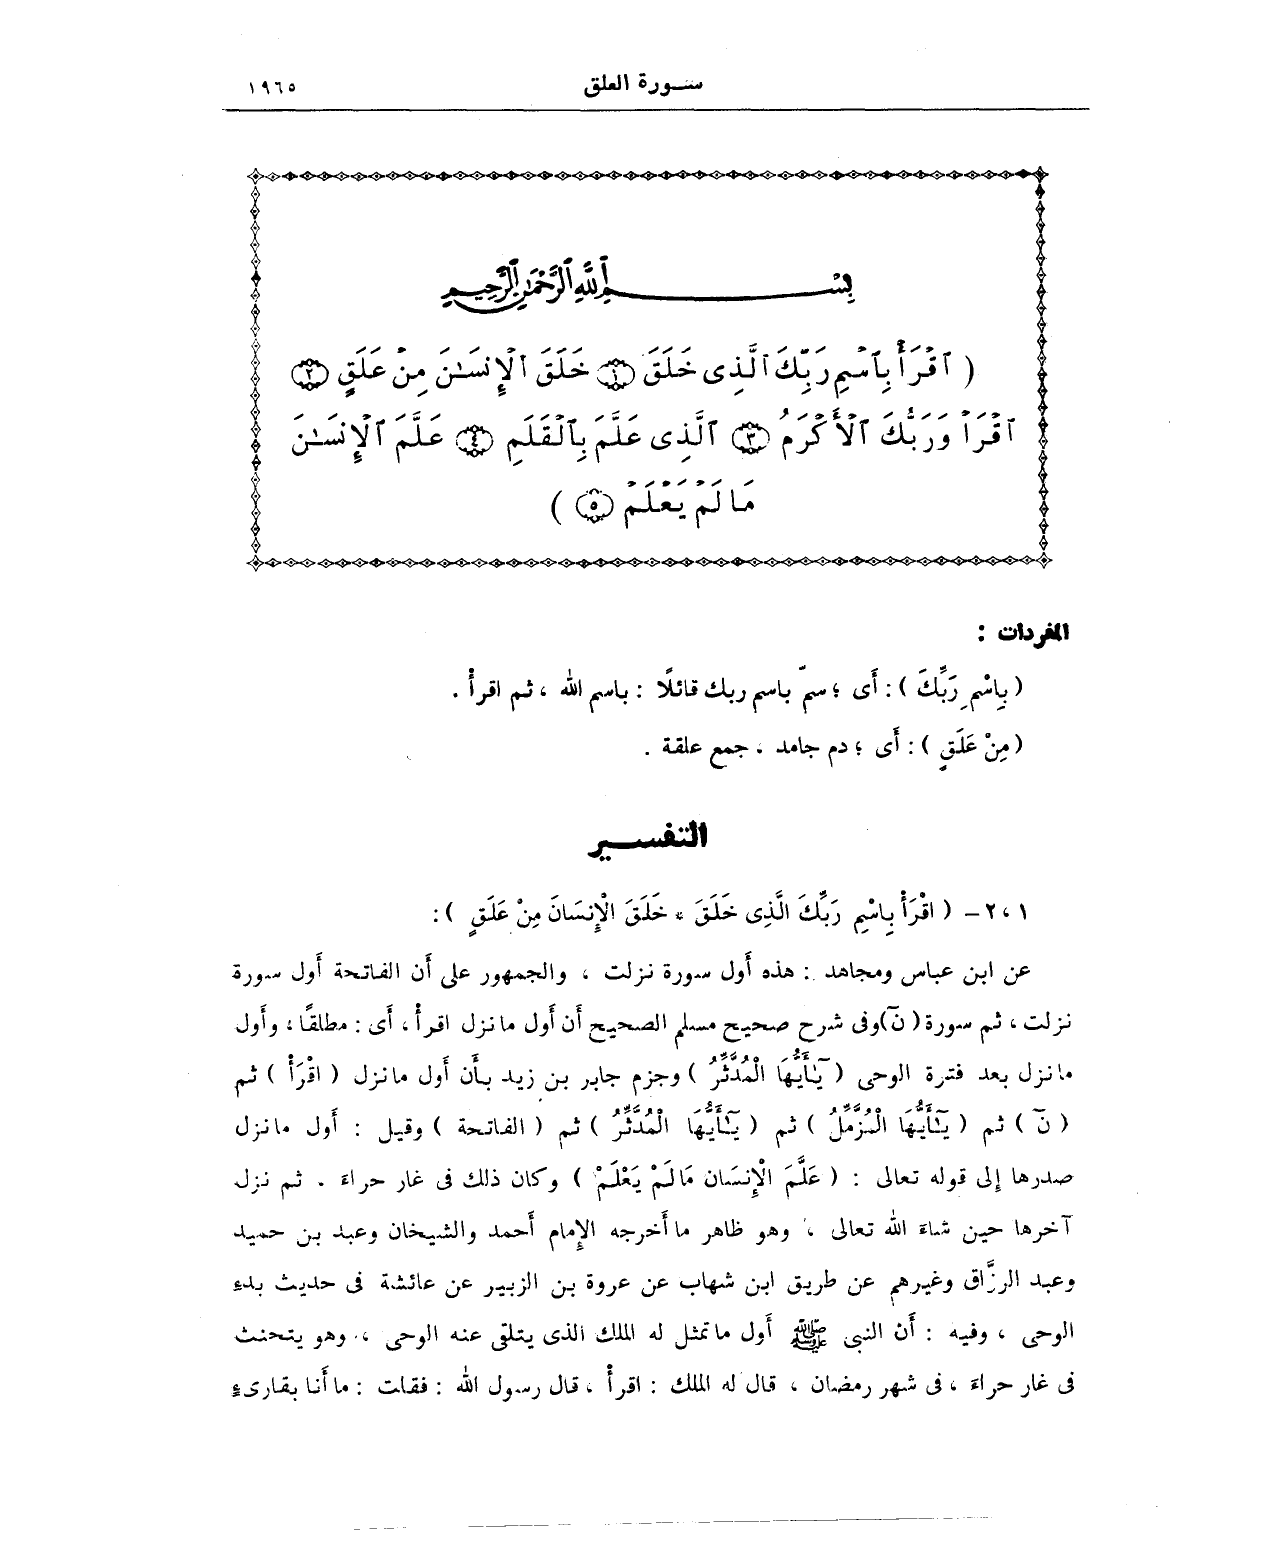 سـورة العلق
١٩٦٥
بِسْــــــمِ ٱللَّهِ ٱلرَّحْمَٰنِ ٱلرَّحِيمِ
( ٱقْرَأْ بِٱسْمِ رَبِّكَ ٱلَّذِى خَلَقَ ١ خَلَقَ ٱلْإِنسَٰنَ مِنْ عَلَقٍ ٢
ٱقْرَأْ وَرَبُّكَ ٱلْأَكْرَمُ ٣ ٱلَّذِى عَلَّمَ بِٱلْقَلَمِ ٤ عَلَّمَ ٱلْإِنسَٰنَ
مَا لَمْ يَعْلَمْ ٥ )
المفردات :
( بِاسْمِ رَبِّكَ ) : أَى ؛ سمّ باسم ربك قائلًا : باسم الله ، ثم اقرأْ .
( مِنْ عَلَقٍ ) : أَى ؛ دم جامد ، جمع علقة .
التفســير
٢،١ – ( اقْرَأْ بِاسْمِ رَبِّكَ الَّذِى خَلَقَ * خَلَقَ الْإِنسَانَ مِنْ عَلَقٍ ) :
عن ابن عباس ومجاهد : هذه أَول سورة نزلت ، والجمهور على أَن الفاتحة أَول سورة
نزلت ، ثم سورة ( نٓ ) وفى شرح صحيح مسلم الصحيح أَن أَول ما نزل اقرأْ ، أَى : مطلقًا ، وأَول
ما نزل بعد فترة الوحى ( يَٰٓأَيُّهَا الْمُدَّثِّرُ ) وجزم جابر بن زيد بأَن أَول ما نزل ( اقْرَأْ ) ثم
( نٓ ) ثم ( يَٰٓأَيُّهَا الْمُزَّمِّلُ ) ثم ( يَٰٓأَيُّهَا الْمُدَّثِّرُ ) ثم ( الفاتحة ) وقيل : أَول ما نزل
صدرها إِلى قوله تعالى : ( عَلَّمَ الْإِنسَان مَا لَمْ يَعْلَمْ ) وكان ذلك فى غار حراءَ . ثم نزل
آخرها حين شاءَ الله تعالى ، وهو ظاهر ما أَخرجه الإِمام أَحمد والشيخان وعبد بن حميد
وعبد الرزَّاق وغيرهم عن طريق ابن شهاب عن عروة بن الزبير عن عائشة فى حديث بدءِ
الوحى ، وفيه : أَن النبى ﷺ أَول ما تمثل له الملك الذى يتلقى عنه الوحى ، وهو يتحنث
فى غار حراءَ ، فى شهر رمضان ، قال له الملك : اقرأْ ، قال رسول الله : فقلت : ما أَنا بقارىءٍ